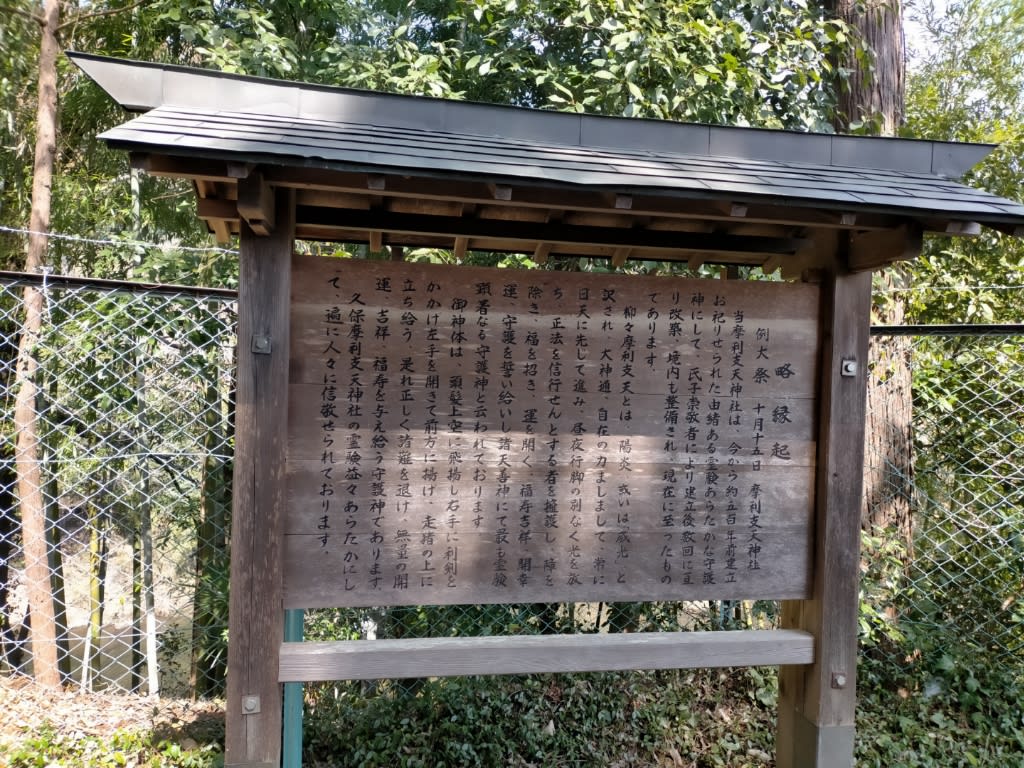 略縁起
例大祭 十月十五日 摩利支天神社
当摩利支天神社は、今から約五百年前建立
お祀りせられた由緒ある霊験あらたかな守護
神にして、氏子崇敬者により建立後数回に亘
り改築、境内も整備され、現在に至ったもの
であります。
抑々摩利支天とは「陽炎」或いは「威光」と
訳され、大神通、自在の力ましまして、常に
日天に先して進み、昼夜行脚の別なく光を放
ち、正法を信行せんとする者を擁護し、障を
除き、福を招き、運を開く、福寿吉祥、開幸
運、守護を誓い給いし諸天善神にて最も霊験
顕著なる守護神と云われております。
御神体は、頭髪上空に飛揚し右手に利剣を
かかげ左手を開きて前方に揚げ、走猪の上に
立ち給う、是れ正しく諸難を退け、無量の開
運、吉祥、福寿を与え給う守護神であります。
久保摩利支天神社の霊験益々あらたかにし
て、遍に人々に信敬せられております。